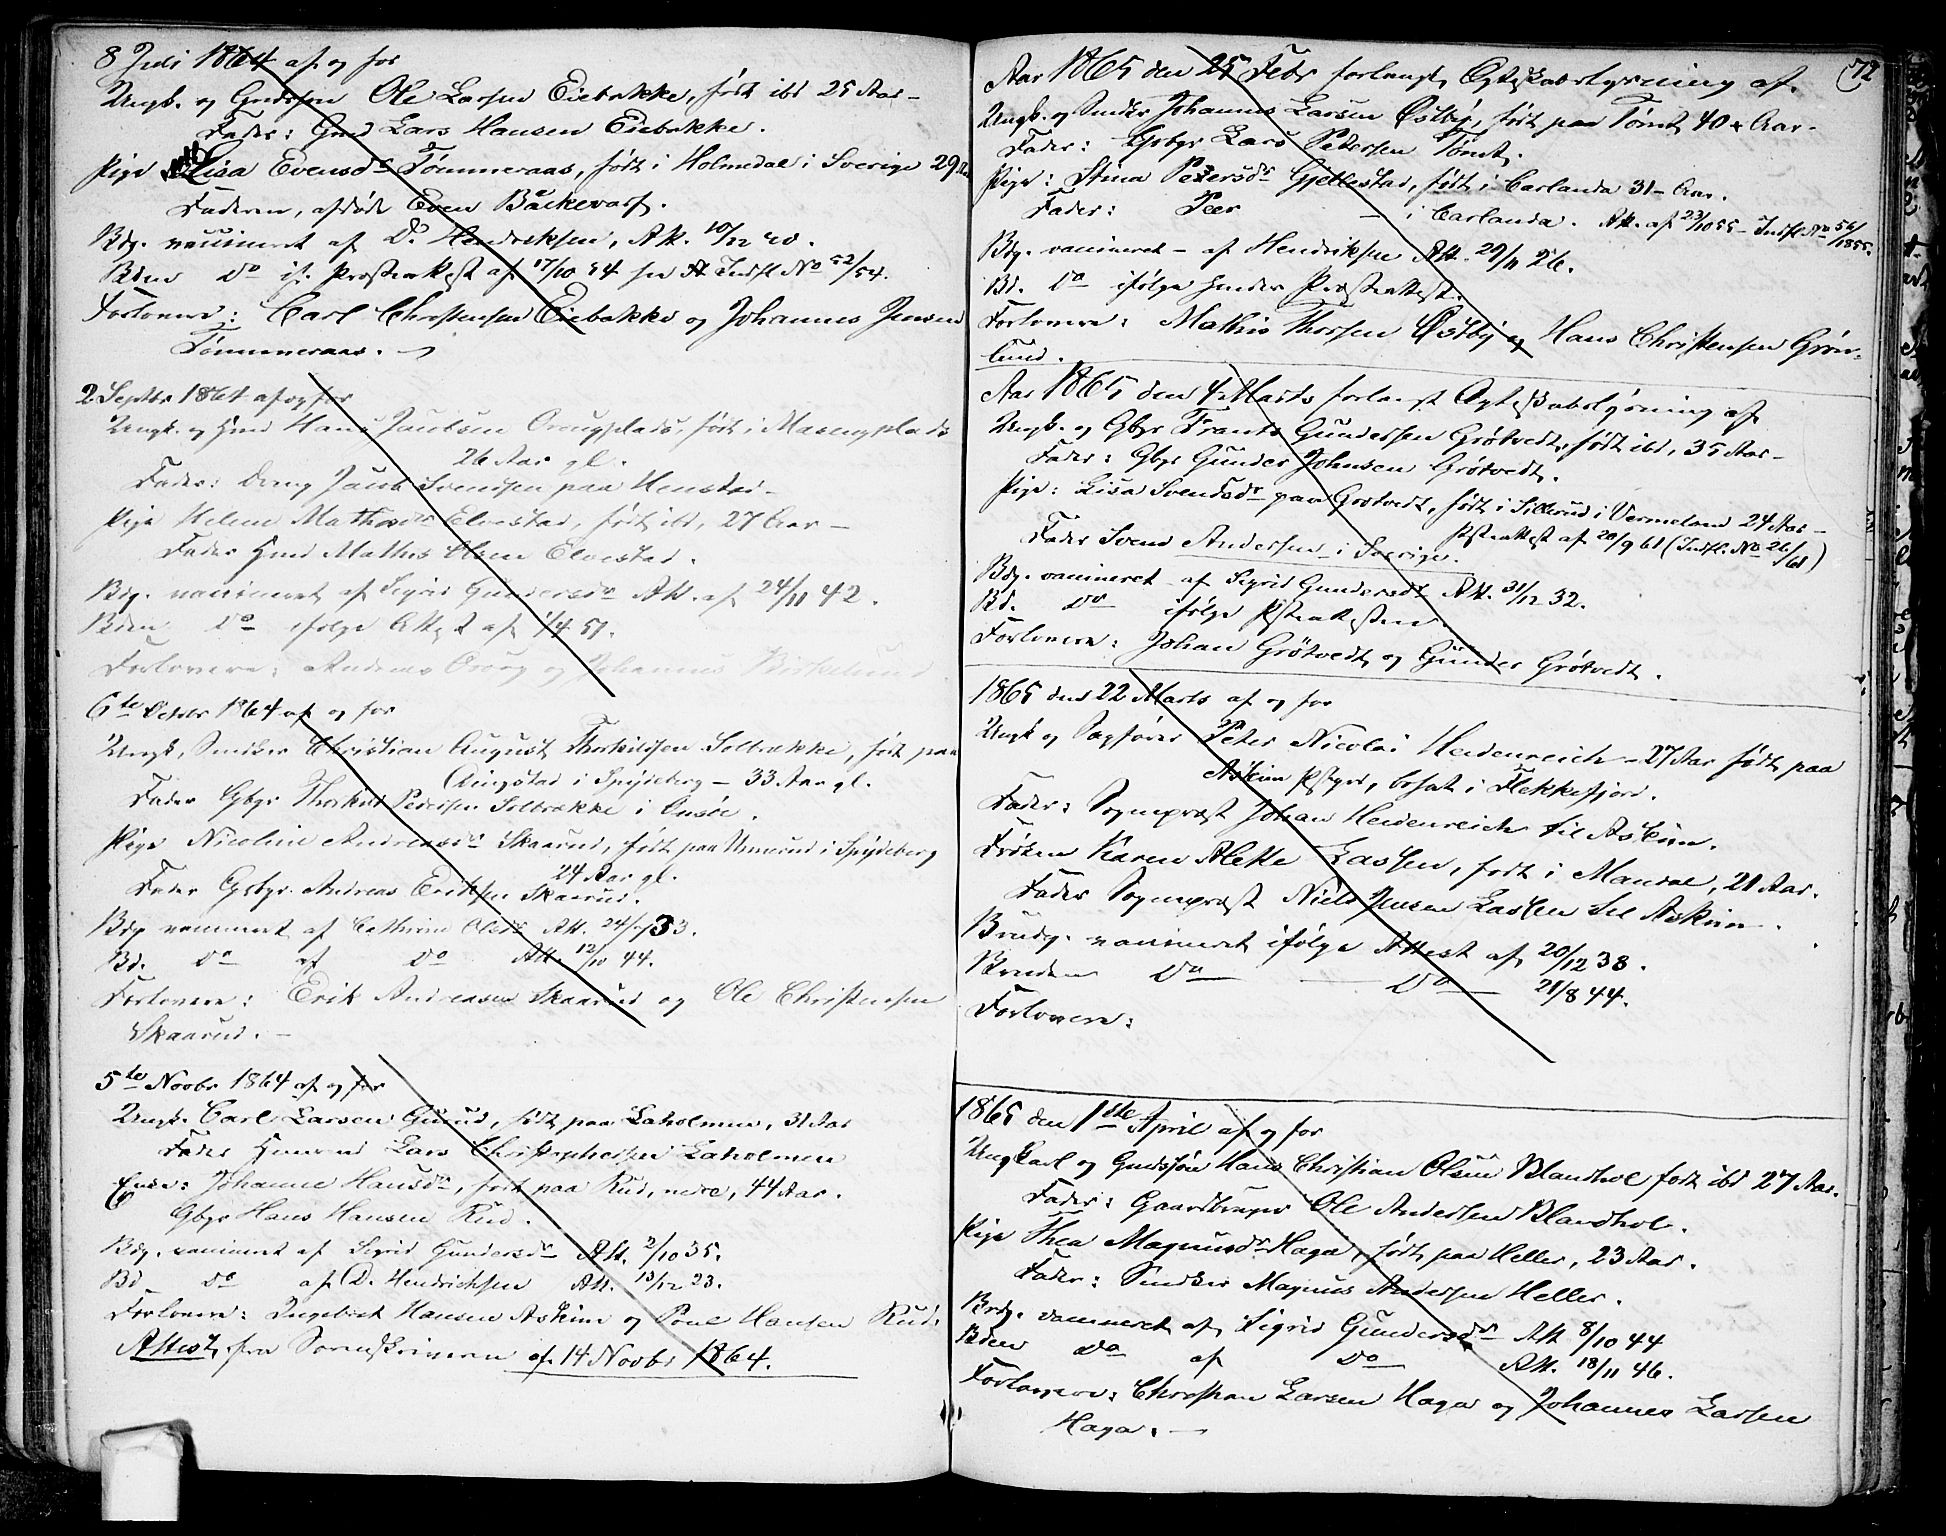 8 Juli 1864 af og for
Ungk. og Gmdssøn Ole Larsen Eiebakke, født ibd 25 Aar –
Fader: Gmd Lars Hansen Eiebakke.
Pige Lisa Evensdr Tømmeraas, født i Holmedal i Sverige 29 Aar
Faderen, afdøde Even Backevarf.
Bdg. vaccineret af D. Hendriksen, Att. 10/12 40.
Bden do if. Præsteattest af 17/10 54 se Indfl No 52/54.
Forlovere: Carl Christensen Eiebakke og Johannes Jensen
Tømmeraas.
2 Septbr 1864 af og for
Ungk. og Hmd Hans Jacobsen Oraugplads, født i Masengplads
26 Aar gl.
Fader: Jacob Svendsen paa Henstad –
Pige Helene Mathisdr Elvestad, født ibd, 27 Aar –
Fader Hmd Mathis Olsen Elvestad.
Bdg. vaccineret af Sigrid Gundersdr Att. af 24/11 42.
Bden do ifølge Attest af 1/4 51.
Forlovere: Andreas Oraug og Johannes Birkelund
6te Octobr 1864 af og for
Ungk. Snedker Christian August Thorkildsen Solbrække, født paa
Aungstad i Spydeberg – 33 Aar gl.
Fader Gbgr Thorkild Pedersen Solbrække i Onsøe.
Pige Nicoline Andreasdr Skaarud, født paa Unnerud i Spydeberg
24 Aar gl.
Fader Gbgr. Andreas Eriksen Skaarud.
Bdg vaccineret af Cathrine Olsdr Att. 24/7 33.
Bd. do af do Att. 12/10 44.
Forlovere: Erik Andreasen Skaarud og Ole Christensen
Skaarud. –
5te Novbr 1864 af og for
Ungk. Carl Larsen Gurud, født paa Laholmen, 31 Aar
Fader Husmand Lars Christophersen Laholmen
Enke: Johanne Hansdr, født paa Rud, nedre, 44 Aar.
Gbgr Hans Hansen Rud.
Bdg. vaccineret af Sigrid Gundersdr Att. 2/10 35.
Bd do af D. Hendrichsen Att. 13/12 23.
Forlovere: Ingebret Hansen Askim og Poul Hansen Rud.
Attest fra Sorenskriveren af 14 Novbr 1864.
72
Aar 1865 den 25 Febr forlangt Ægteskabslysning af
Ungk. og Smder Johannes Larsen Østby, født paa Tømt 40 Aar.
Fader: Gbgr Lars Pedersen Tømt.
Pige: Stina Petersdr Gjellestad, født i Carlanda 31 – Aar.
Fader: Peer – i Carlanda. Att. af 23/10 55 – Indfl. No 56/1855.
Bdg. vaccineret – af Hendriksen Att. 29/11 26.
Bd. do ifølge hendes Præsteattest.
Forlovere: Mathis Thorsen Østby og Hans Christensen Grøn-
lund.
Aar 1865 den 4 Marts forlangt Ægteskabslysning af
Ungk. og Gbgr Frants Gundersen Grøtvedt, født ibd, 35 Aar –
Fader: Gbgr Gunder Johnsen Grøtvedt.
Pige: Lisa Svendsdr paa Grøtvedt, født i Sillerud i Vermeland 24 Aar –
Fader Svend Andersen i Sverige. Pstrattest af 20/9 61 (Indfl. No 26/61)
Bdg. vaccineret – af Sigrid Gundersdr Att. 31/12 32.
Bd. do ifølge Pstrattesten.
Forlovere: Johan Grøtvedt og Gunder Grøtvedt.
1865 den 22 Marts af og for
Ungk og Sagfører Peter Nicolai Heidenreich – 27 Aar født paa
Askim Pstgrd, bosat i Flekkefjord.
Fader: Sognepræst Johan Heidenreich til Askim.
Frøken Karen Alette Lassen, født i Mandal, 21 Aar.
Fader Sognepræst Niels Jensen Lassen til Askim.
Brudg. vaccineret ifølge Attest af 20/12 38.
Bruden do – do – 21/8 44.
Forlovere:
1865 den 1ste April af og for
Ungkarl og Gmdssøn Hans Christian Olsen Blandhol født ibd 27 Aar.
Fader: Gaardbruger Ole Andersen Blandhol.
Pige Thea Magnusdr Haga, født paa Heller, 23 Aar.
Fader: Snedker Magnus Andersen Heller.
Brdg. vaccineret af Sigrid Gundersdr Att 8/10 44
Bden do af do Att. 18/11 46.
Forlovere: Christian Larsen Haga og Johannes Larsen
Haga. –